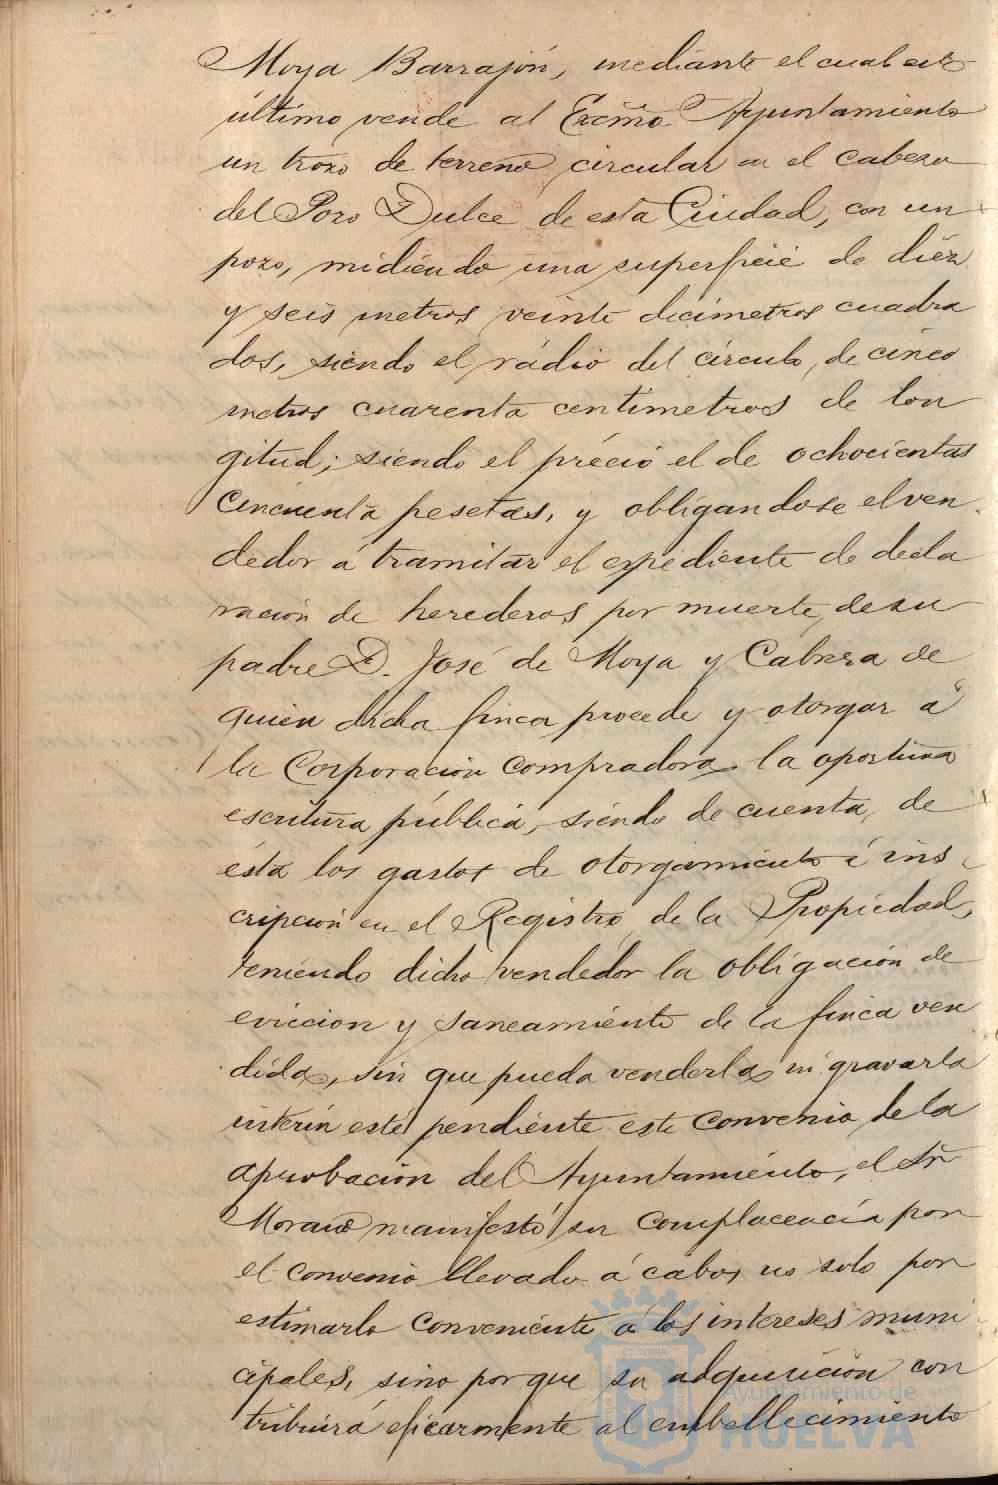 Moya Barrajón, mediante el cual este
último vende al Excmo. Ayuntamiento
un trozo de terreno circular en el Cabezo
del Pozo Dulce de esta Ciudad, con un
pozo, midiendo una superficie de diéz
y seis metros veinte decímetros cuadra
dos, siendo el rádio del círculo, de cinco
metros cuarenta centimetros de lon
gitud; siendo el précio el de ochocientas
cincuenta pesetas, y obligandose el ven
dedor á tramitar el expediente de decla
ración de herederos por muerte, de su
padre D. José de Moya y Cabrera de
quien dicha finca procede y otorgar á
la Corporación compradora la oportuna
escritura pública, siendo de cuenta, de
ésta los gastos de otorgamiento é ins
cripción en el Registro de la Propiedad,
teniendo dicho vendedor la obligación de
eviccion y saneamiento de la finca ven
dida, sin que pueda venderla ni gravarla
interin esté pendiente este convenio de la
aprobación del Ayuntamiento, el Sr.
Morano manifestó su complacencía por
el convenio llevado á cabo, no solo por
estimarlo conveniente á los intereses muni
cipales, sino porque su adquisición con
tribuirá eficazmente al embellecimiento
ET TERRA
Ayuntamiento de
HUELVA